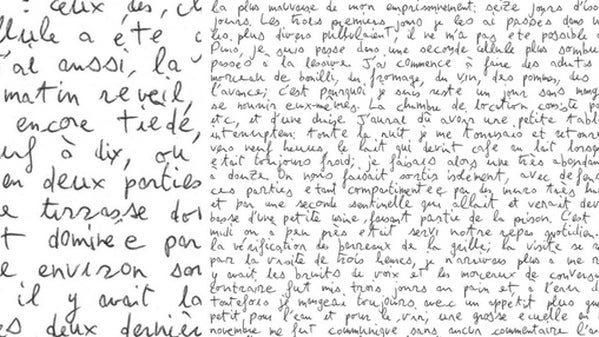 : ceux des, il
llule a été
'ai aussi, la
matin réveil,
encore tiède,
uf à dix, ou
en deux parties
e terrasse do
t dominée par
e environ son
il y avait la
es deux dernièr
la plus mauvaise de mon emprisonnement: seize jours d'
jours. Les trois premiers jours je les ai passés dans u
les plus divers pullulaient, il ne m'a pas été possible
Puis, je suis passé dans une seconde cellule plus sombre
passés à la lessive. J'ai commencé à faire des achats
morceau de bouilli, du fromage, du vin, des pommes, des
l'avance; c'est pourquoi je suis resté un jour sans mang
se nourrir eux-mêmes. La chambre de location, consiste
etc., et d'une chaise J'aurai dû avoir une petite tabl
interruption: toute la nuit je me tournais et retour
vers neuf heures, le lait qui devint café au lait lorsqu
était toujours froid; je faisais alors une très abondan
à douze On nous faisait sortir isolément, avec défens
ces parties étant compartimentée par des murs très hau
et par une seconde sentinelle qui allait et venait dev
basse d'une petite usine faisant partie de la prison. C'est
midi on à peu près était servi notre repas quotidien.
la vérification des barreaux de la grille; la visite se
par la visite de trois heures, je n'arrivais plus à me r
y avait les bruits de voix et les morceaux de conversa
contraire fut mis trois jours au pain et à l'eau d
toutefois je mangeai toujours avec un appétit plus qu
petit, pour l'eau et pour le vin; une grosse écuelle en
novembre me fut communiqué sans aucun commentaire l'a